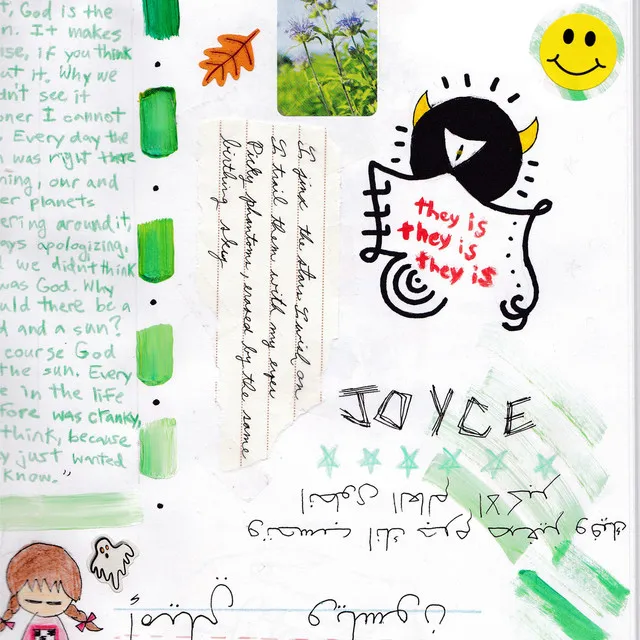 t, God is the
n. It makes
se, if you think
ut it. Why we
dn't see it
oner I cannot
. Every day the
n was right there
ning, our and
er planets
ering around it,
ays apologizing.
d we didn't think
was God. Why
uld there be a
d and a sun?
course God
the sun. Every
e in the life
fore was cranky,
think, because
y just wanted
know."
I find the stars I wish on
I trail them with my eyes
Picky phantoms, erased by the same
birthing sky
they is
they is
they is
JOYCE
وتحسب انك جرم صغير وفيك
انطوى العالم الاكبر